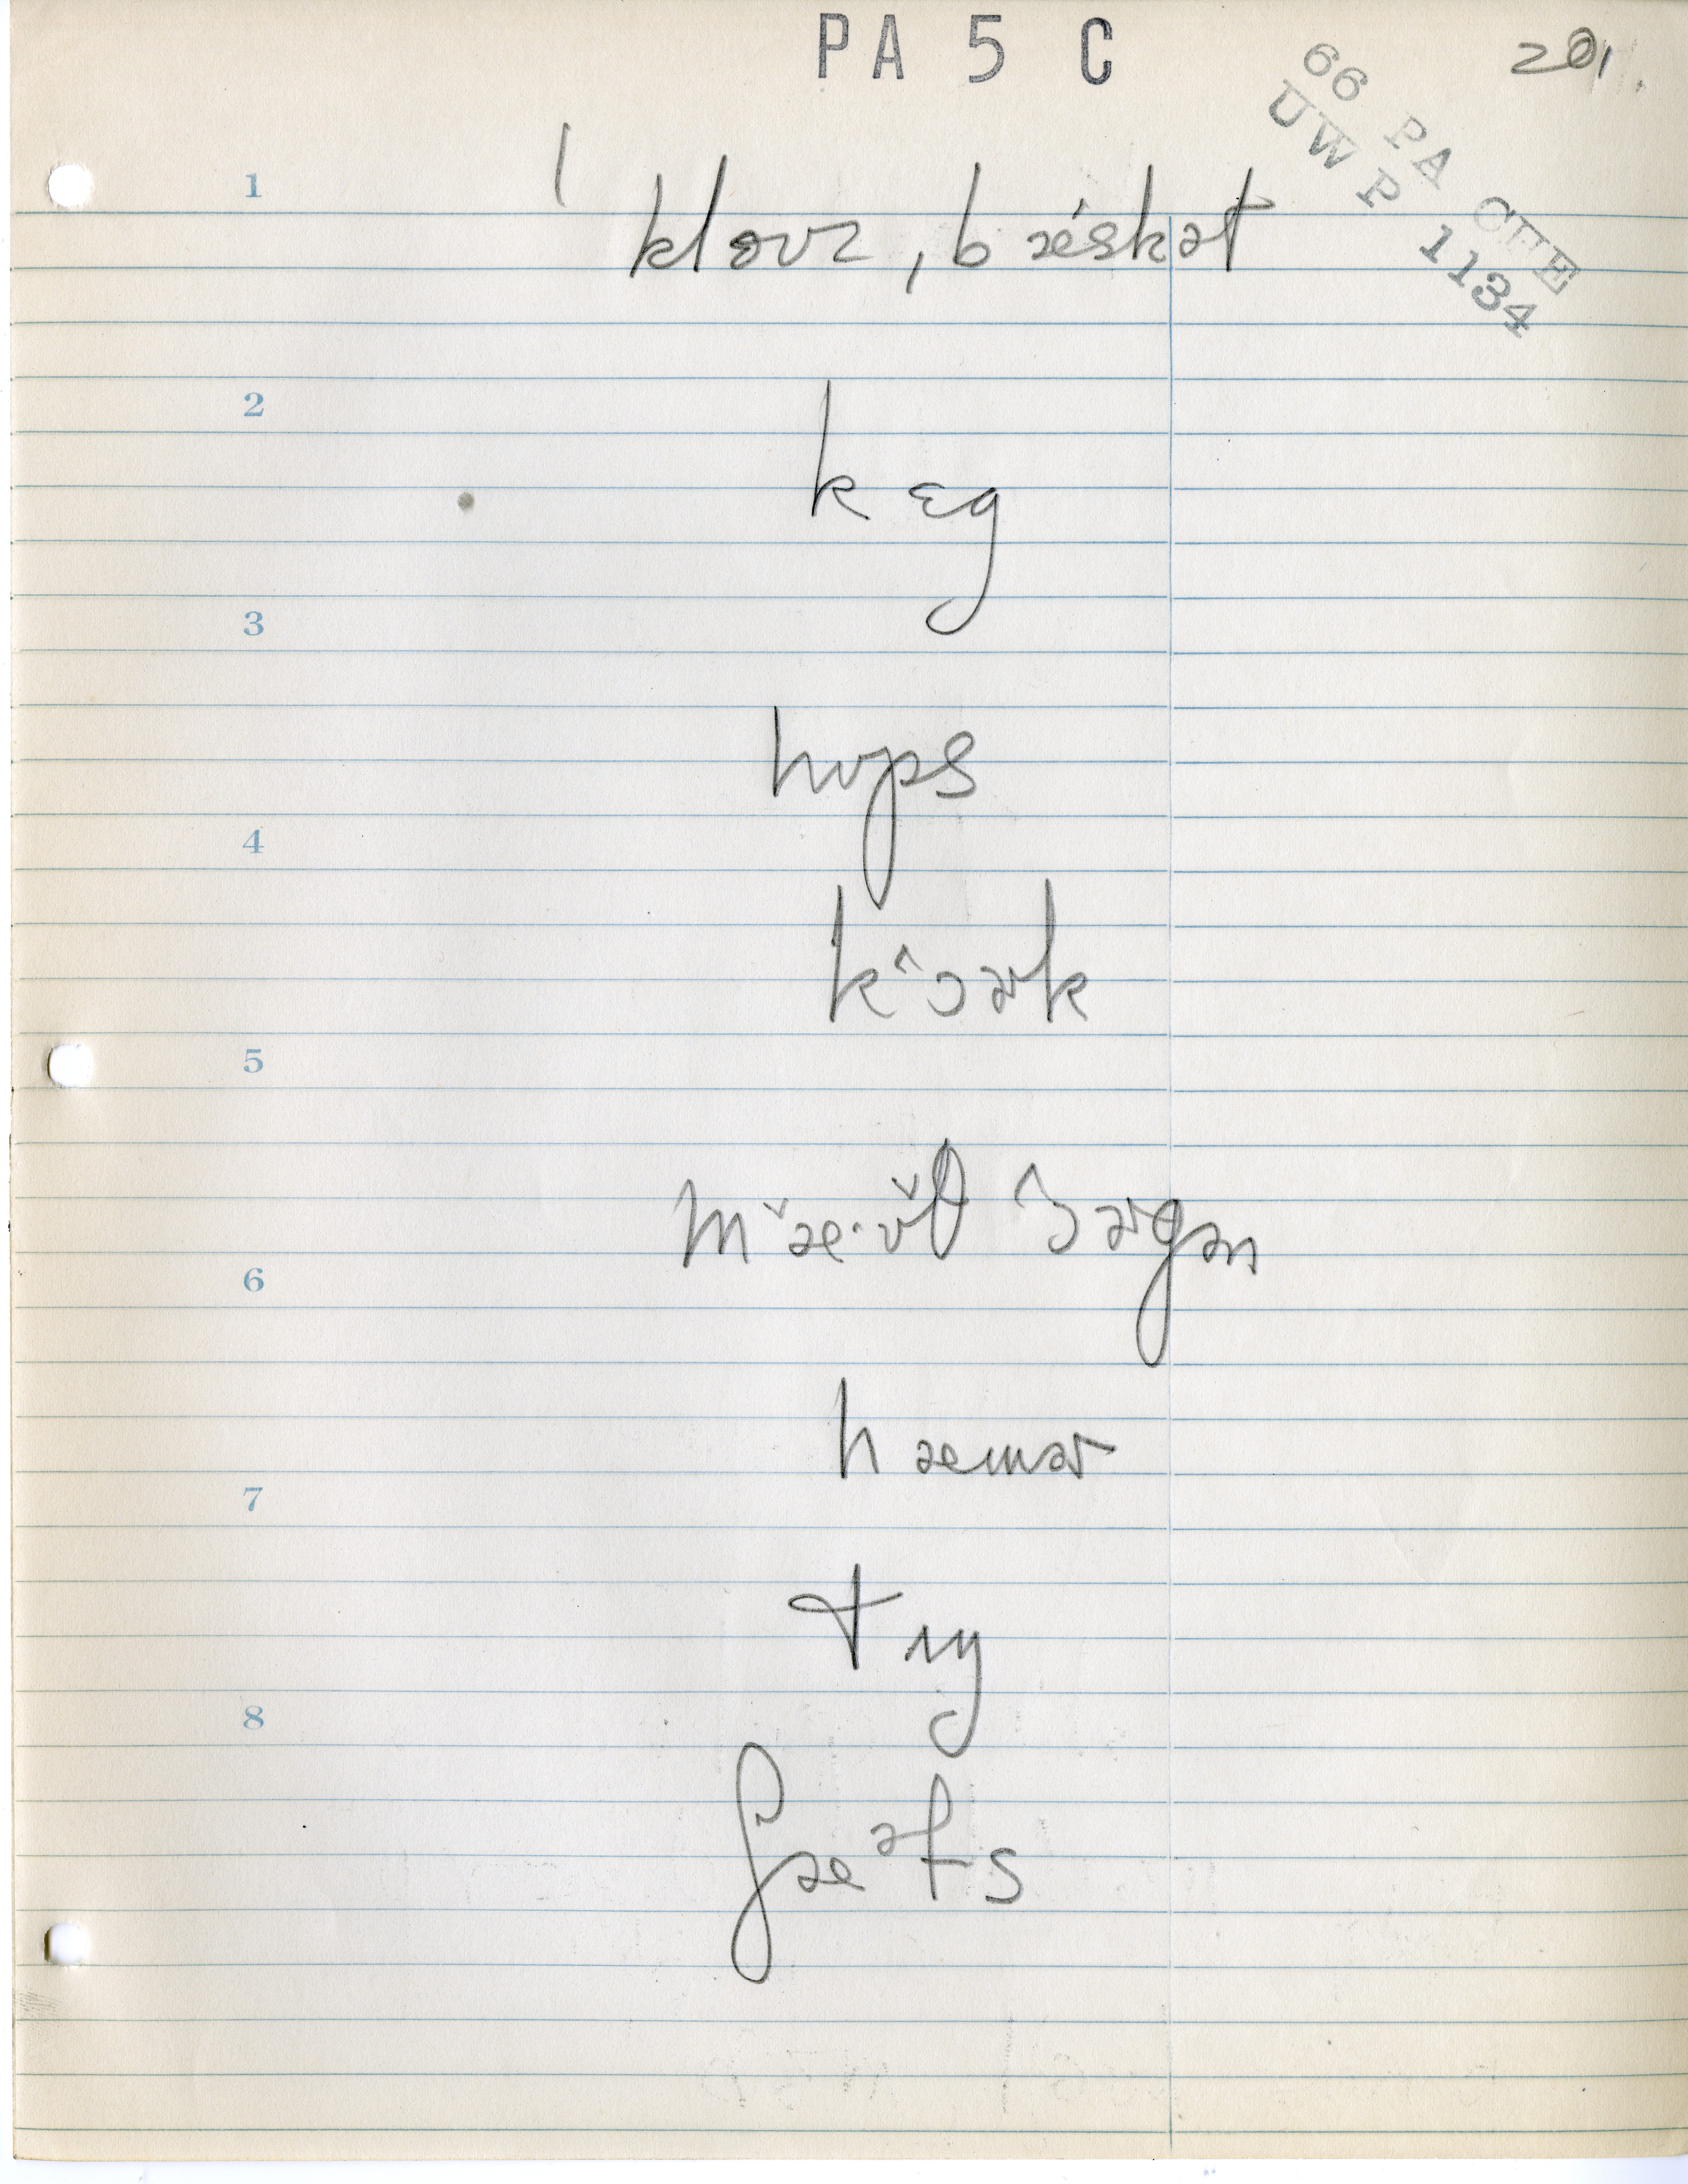 PA 5 C
201.
66 PA CHE
UWP 1134
1
kloʊz, bǽskət
2
kɛg
3
hʊps
4
kɔ^ɚk
5
mæˇ·ʊ̌θ ɔ^ɚgən
6
hæmɚ
7
tʌŋ
8
ʃæᵊfs